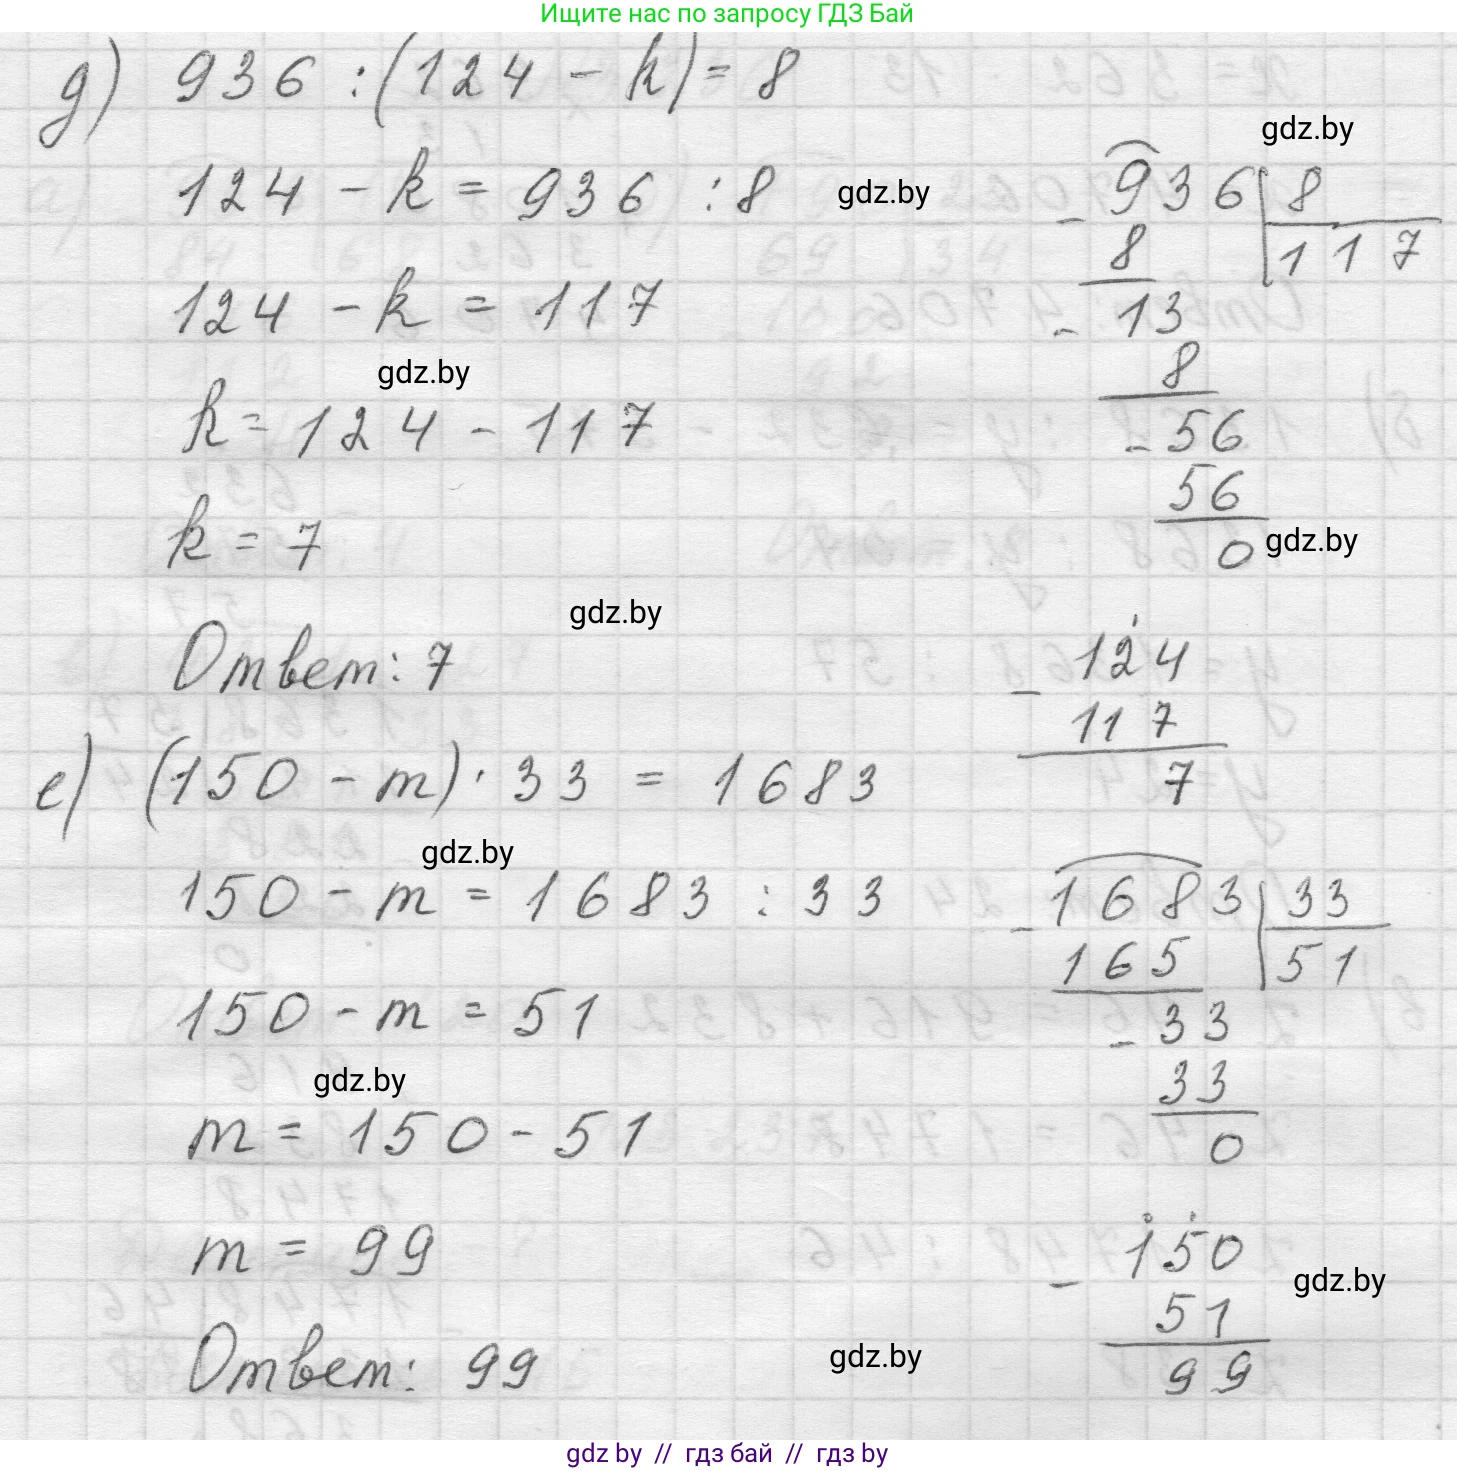 Ищите нас по запросу ГДЗ Бай
д) 936 : (124 - k) = 8
124 - k = 936 : 8
124 - k = 117
k = 124 - 117
k = 7
Ответ: 7
936 | 8
8 | 117
- 13
8
- 56
56
0
- 124
117
7
е) (150 - m) · 33 = 1683
150 - m = 1683 : 33
150 - m = 51
m = 150 - 51
m = 99
Ответ: 99
- 1683 | 33
165 | 51
- 33
33
0
- 150
51
99
gdz.by
gdz.by
gdz.by
gdz.by
gdz.by
gdz.by
gdz.by
gdz.by
gdz.by
gdz by // гдз бай // гдз by